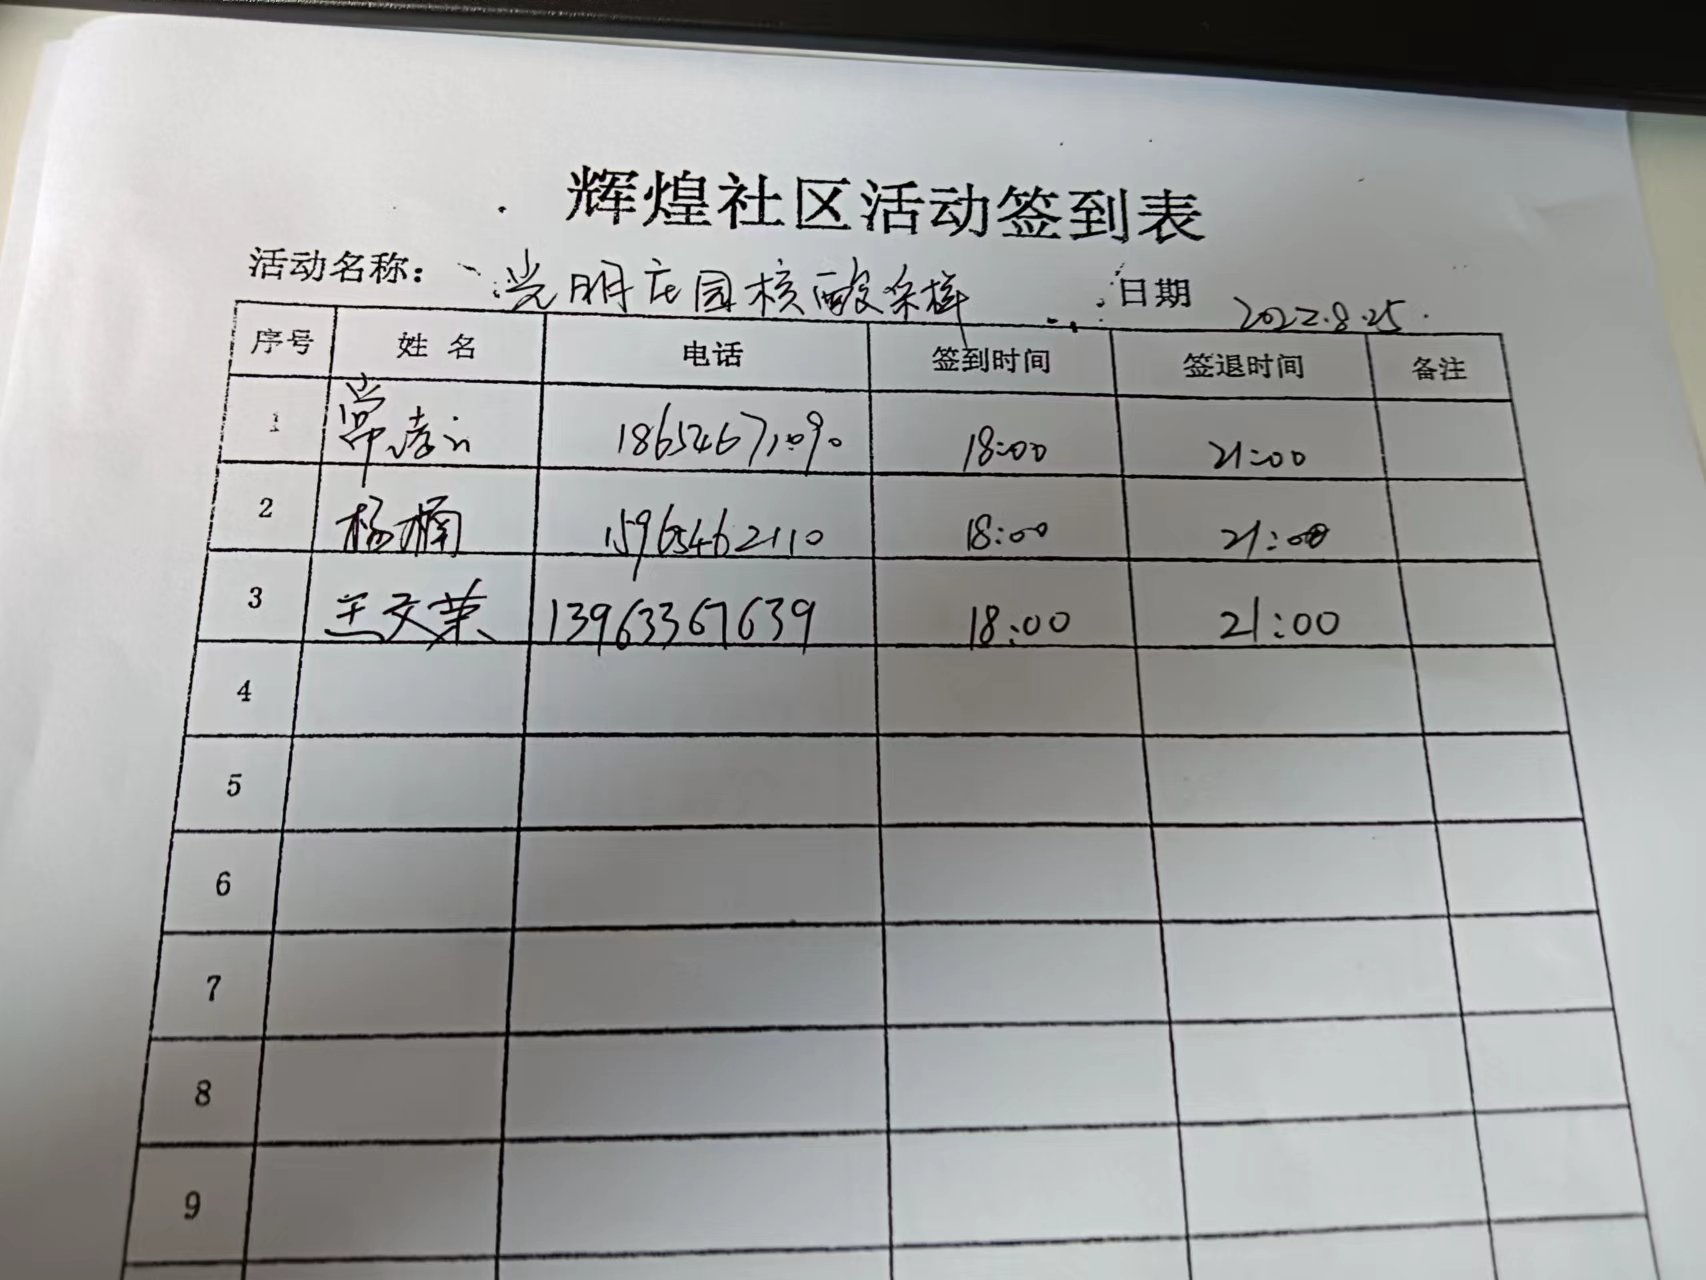 辉煌社区活动签到表
活动名称： 光明庄园核酸采样 日期 2022.8.25
序号 姓名 电话 签到时间 签退时间 备注
1 18654671090 18:00 21:00
2 杨楠 15965462110 18:00 21:00
3 王文荣 13963367639 18:00 21:00
4
5
6
7
8
9